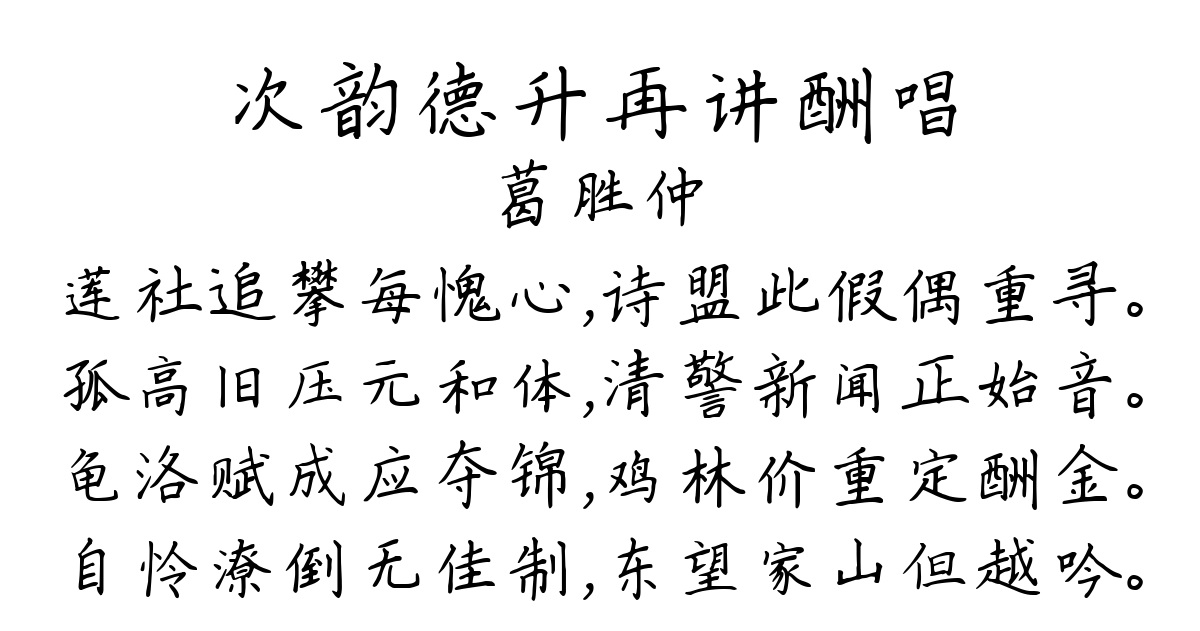 次韵德升再讲酬唱
葛胜仲
莲社追攀每愧心,诗盟此假偶重寻。
孤高旧压元和体,清警新闻正始音。
龟洛赋成应夺锦,鸡林价重定酬金。
自怜潦倒无佳制,东望家山但越吟。